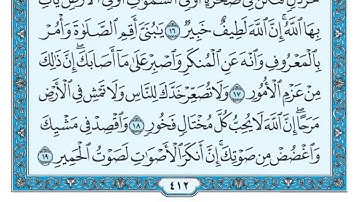 خَرْدَلٍ فَتَكُن فِي صَخْرَةٍ أَوْ فِي ٱلسَّمَٰوَٰتِ أَوْ فِي ٱلْأَرْضِ يَأْتِ
بِهَا ٱللَّهُ ۚ إِنَّ ٱللَّهَ لَطِيفٌ خَبِيرٌ ١٦ يَٰبُنَيَّ أَقِمِ ٱلصَّلَوٰةَ وَأْمُرْ
بِٱلْمَعْرُوفِ وَٱنْهَ عَنِ ٱلْمُنكَرِ وَٱصْبِرْ عَلَىٰ مَآ أَصَابَكَ ۖ إِنَّ ذَٰلِكَ
مِنْ عَزْمِ ٱلْأُمُورِ ١٧ وَلَا تُصَعِّرْ خَدَّكَ لِلنَّاسِ وَلَا تَمْشِ فِي ٱلْأَرْضِ
مَرَحًا ۖ إِنَّ ٱللَّهَ لَا يُحِبُّ كُلَّ مُخْتَالٍ فَخُورٍ ١٨ وَٱقْصِدْ فِي مَشْيِكَ
وَٱغْضُضْ مِن صَوْتِكَ ۚ إِنَّ أَنكَرَ ٱلْأَصْوَٰتِ لَصَوْتُ ٱلْحَمِيرِ ١٩
٤١٢